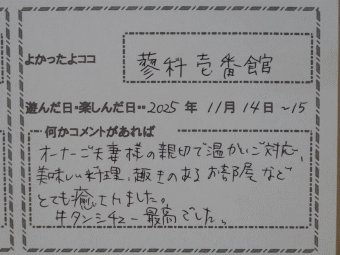 よかったよココ 蓼科壱番館
遊んだ日・楽しんだ日・・ 2025 年 11月 14日~15
何かコメントがあれば
オーナーご夫妻様の親切で温かいご対応、
美味しい料理、趣きのあるお部屋など
とても癒されました。
牛タンシチュー最高でした。